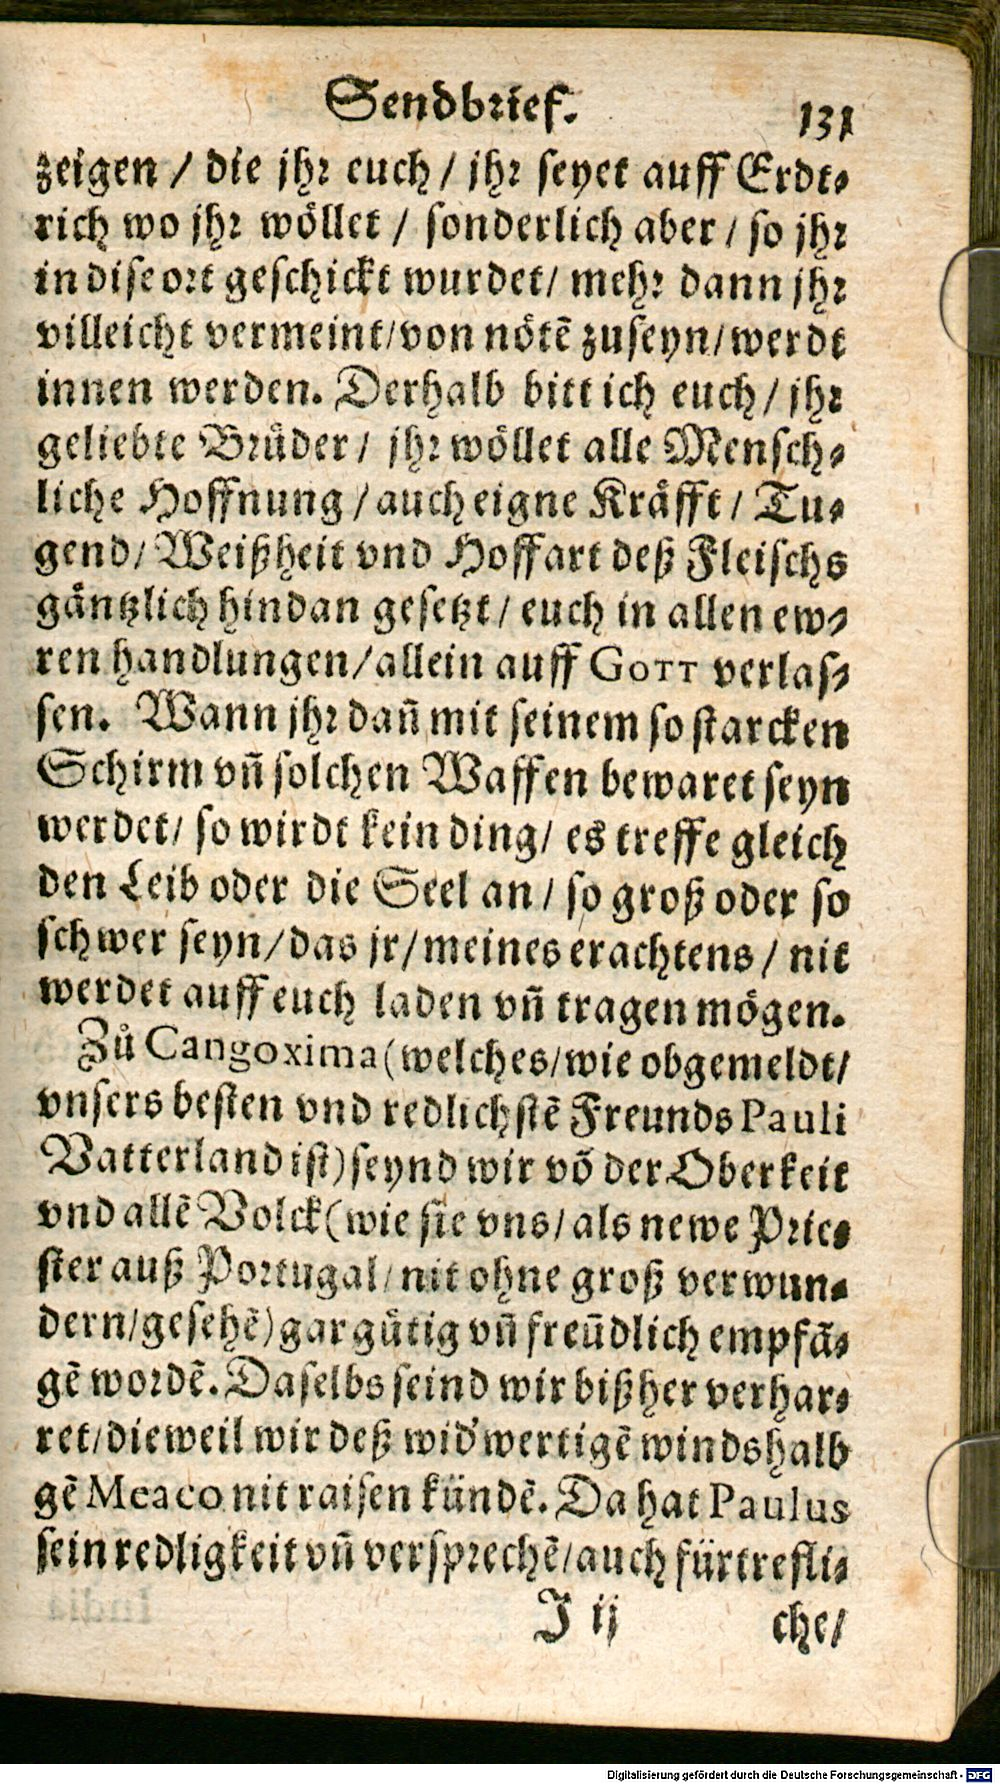 Sendbrief. 131
zeigen / die jhr euch / jhr seyet auff Erdt-
rich wo jhr wöllet / sonderlich aber / so jhr
in dise ort geschickt wurdet / mehr dann jhr
villeicht vermeint / von nötē zuseyn / werdt
innen werden. Derhalb bitt ich euch / jhr
geliebte Brüder / jhr wöllet alle Mensch-
liche Hoffnung / auch eigne Kräfft / Tu-
gend / Weißheit vnd Hoffart deß Fleischs
gäntzlich hindan gesetzt / euch in allen ew-
ren handlungen / allein auff GOTT verlas-
sen. Wann jhr dañ mit seinem so starcken
Schirm vñ solchen Waffen bewaret seyn
werdet / so wirdt kein ding / es treffe gleich
den Leib oder die Seel an / so groß oder so
schwer seyn / das jr / meines erachtens / nit
werdet auff euch laden vñ tragen mögen.
Zů Cangoxima (welches / wie obgemeldt /
vnsers besten vnd redlichstē Freunds Pauli
Vatterland ist) seynd wir vō der Oberkeit
vnd allē Volck (wie sie vns / als newe Prie-
ster auß Portugal / nit ohne groß verwun-
dern / gesehē) gar gütig vñ freūdlich empfā-
gē wordē. Daselbs seind wir bißher verhar-
ret / dieweil wir deß wid'wertigē winds halb
gē Meaco nit raisen kündē. Da hat Paulus
sein redligkeit vñ versprechē / auch fürtrefli-
J ij che /
Digitalisierung gefördert durch die Deutsche Forschungsgemeinschaft - DFG